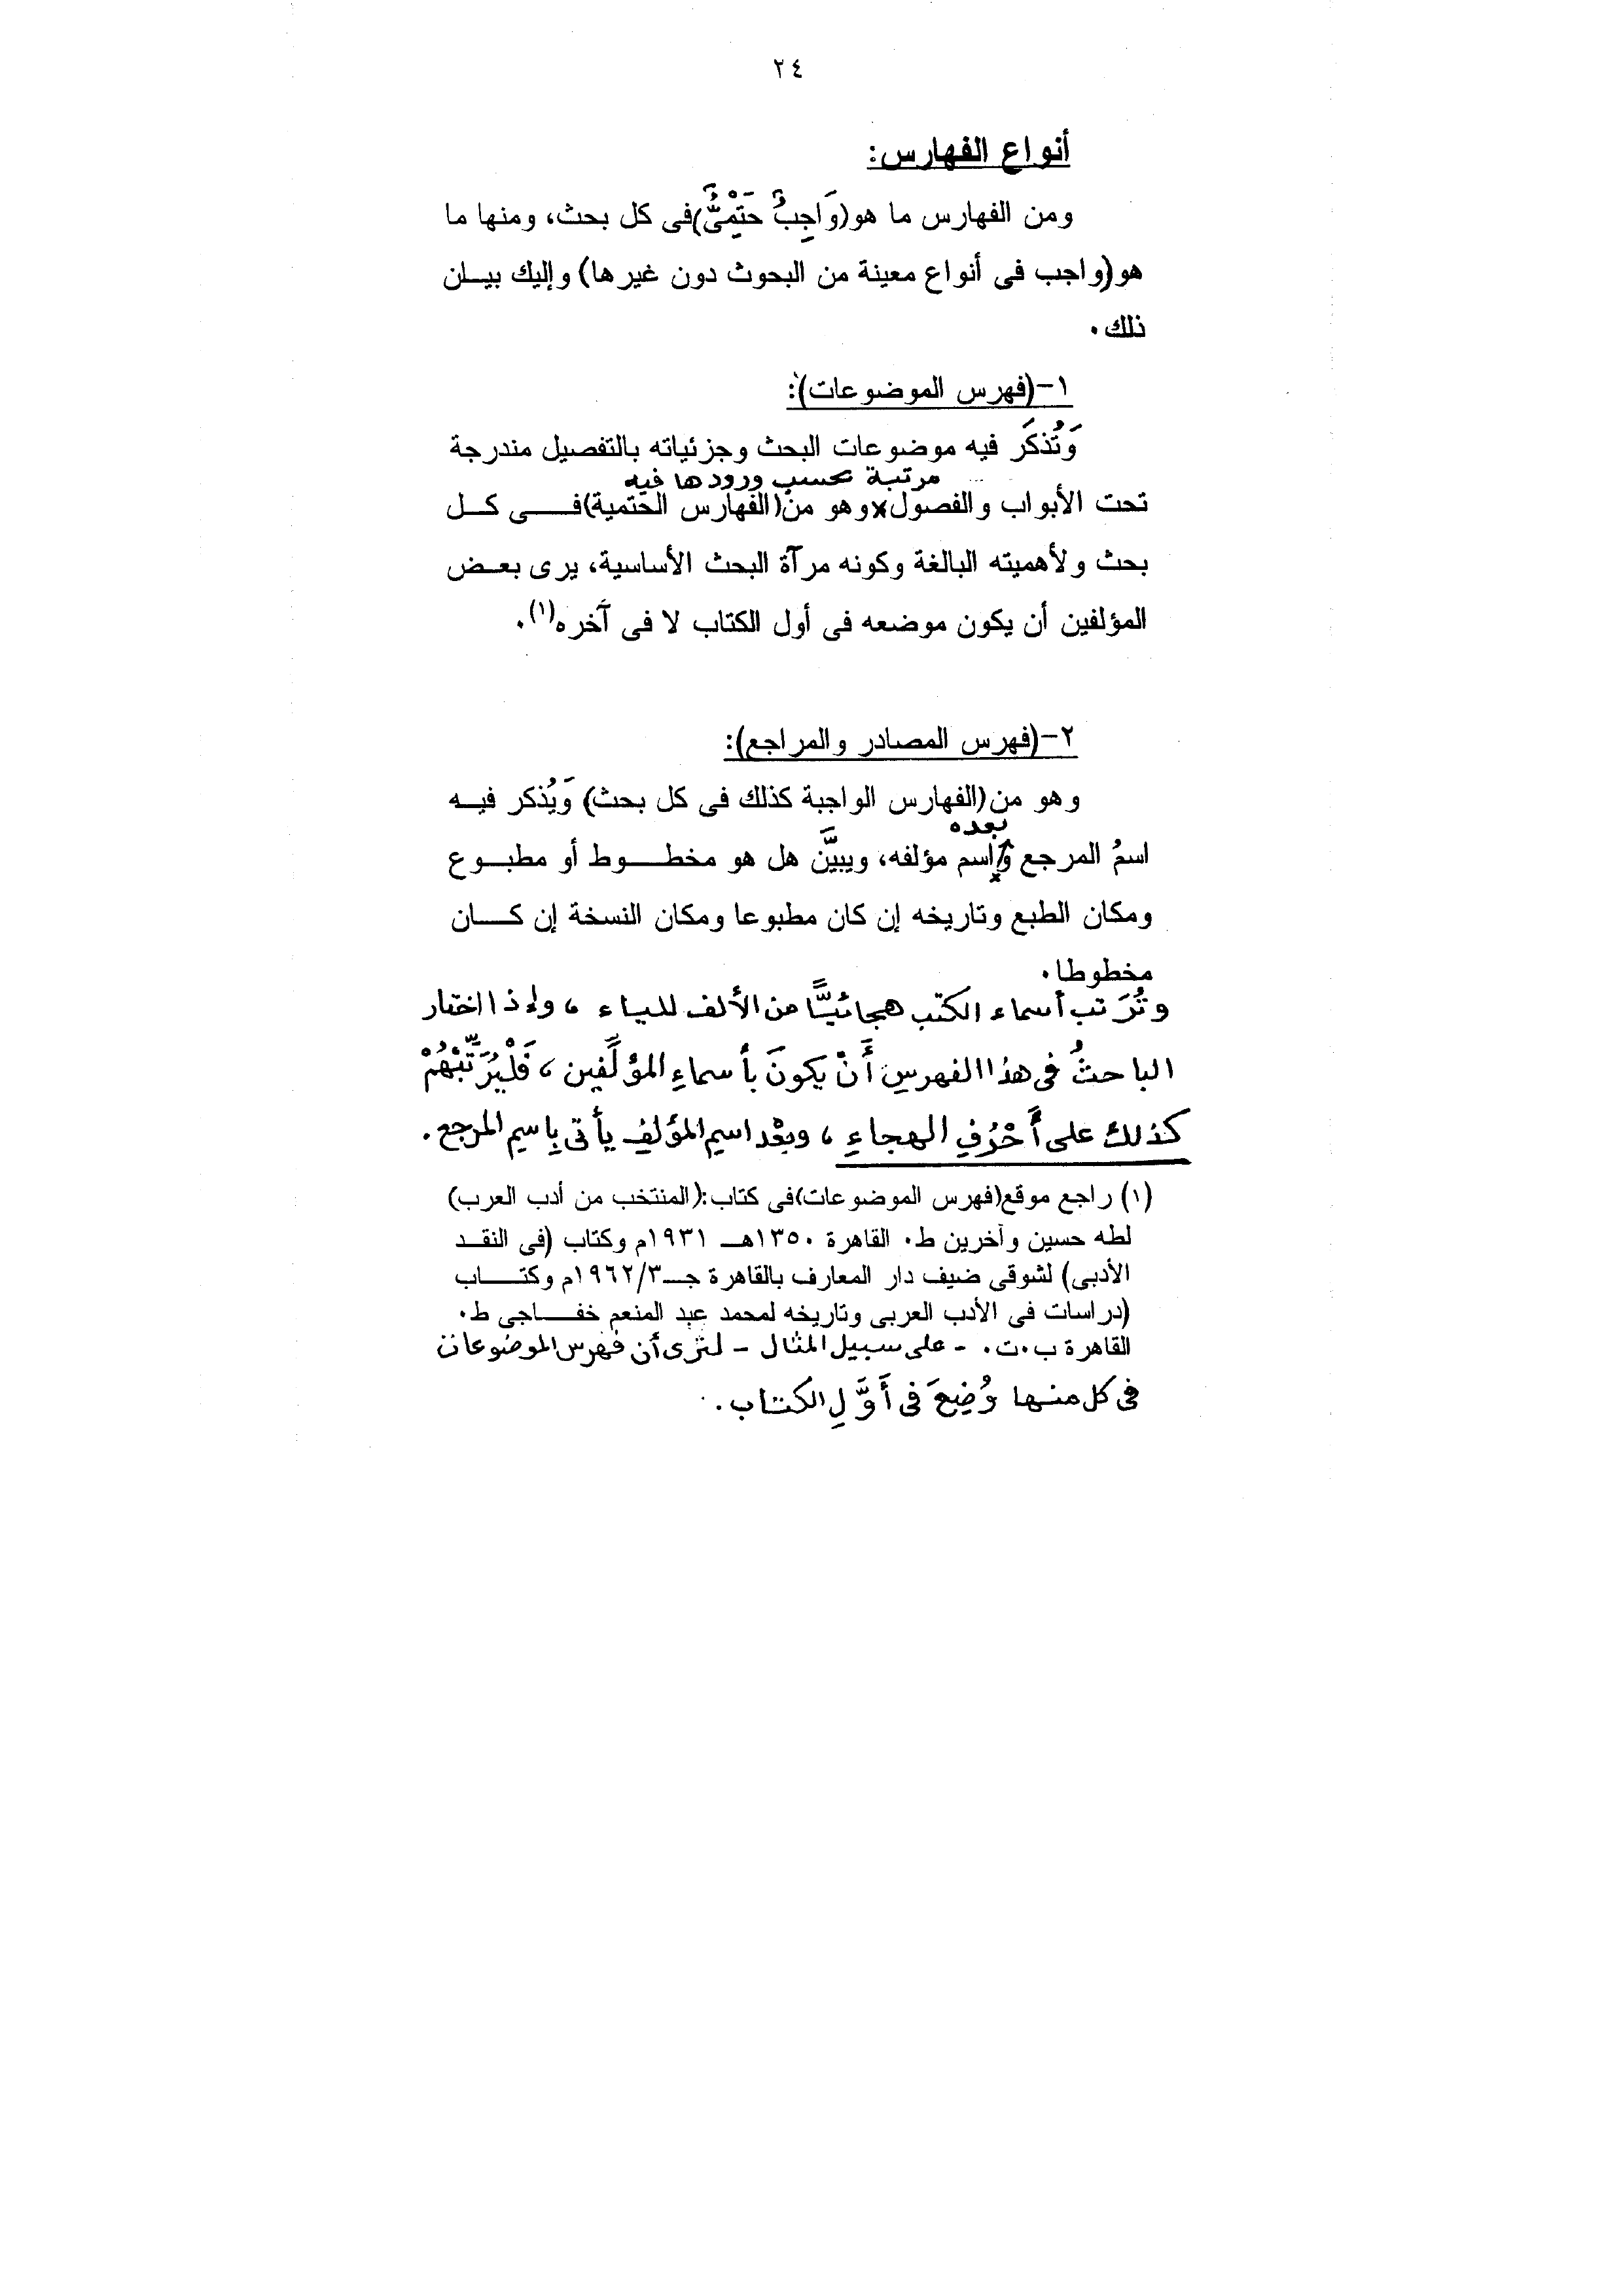 ٢٤
أنواع الفهارس:
ومن الفهارس ما هو(وَاجِبٌ حَتْمِىٌّ)فى كل بحث، ومنها ما
هو(واجب فى أنواع معينة من البحوث دون غيرها) وإليك بيـان
ذلك٠
١-(فهرس الموضوعات):
وَتُذكَر فيه موضوعات البحث وجزئياته بالتفصيل مندرجة
مرتبة بحسب ورودها فيه
تحت الأبواب والفصول×وهو من(الفهارس الحتمية)فــى كـل
بحث ولأهميته البالغة وكونه مرآة البحث الأساسية، يرى بعـض
المؤلفين أن يكون موضعه فى أول الكتاب لا فى آخره(١)٠
٢-(فهرس المصادر والمراجع):
وهو من(الفهارس الواجبة كذلك فى كل بحث) وَيُذكر فيـه
بعده
اسمُ المرجع واسم مؤلفه، ويبيَّن هل هو مخطــوط أو مطبـوع
ومكان الطبع وتاريخه إن كان مطبوعا ومكان النسخة إن كــان
مخطوطا٠
وتُرَتب أسماء الكتب هجائيًّا من الألف للياء ، وإذا اختار
الباحثُ فى هذا الفهرسِ أَنْ يكونَ بأسماءِ المؤلِّفين ، فَلْيُرَتِّبْهُمْ
كذلك على أَحْرُفِ الهجاءِ ، وبعْد اسم المؤلفِ يأتى بِاسمِ المرجع .
(١) راجع موقع(فهرس الموضوعات)فى كتاب:(المنتخب من أدب العرب)
لطه حسين وآخرين ط٠ القاهرة ١٣٥٠هـ ١٩٣١م وكتاب (فى النقـد
الأدبى) لشوقى ضيف دار المعارف بالقاهرة جـ٣/١٩٦٢م وكتــاب
(دراسات فى الأدب العربى وتاريخه لمحمد عبد المنعم خفــاجى ط٠
القاهرة ب٠ت٠ - على سبيل المثال - لترى أن فهرس الموضوعات
فى كل منها وُضِعَ فى أَوَّلِ الكتاب .